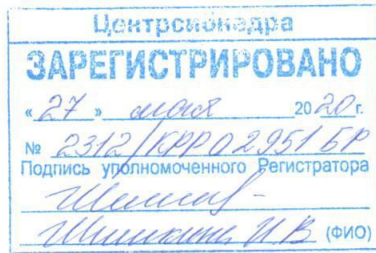 Центрсибнедра
ЗАРЕГИСТРИРОВАНО
« 27 » мая 2020 г.
№ 2312/КРР 02951 БР
Подпись уполномоченного Регистратора
И.В. (ФИО)